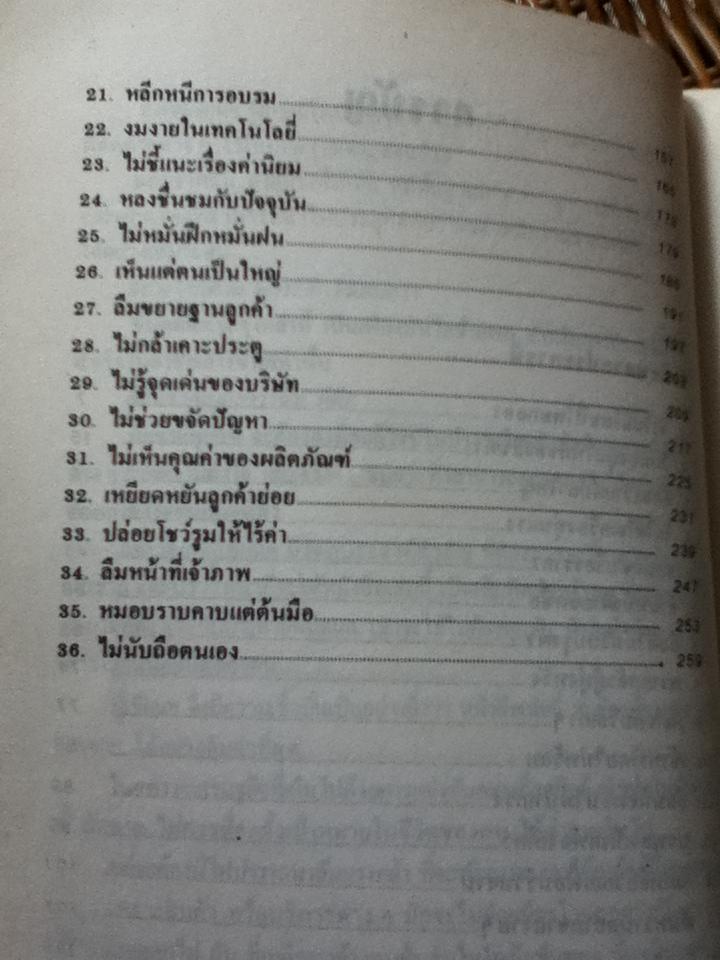 21. หลีกหนีการอบรม
22. งมงายในเทคโนโลยี่ 165
23. ไม่ชี้แนะเรื่องค่านิยม
24. หลงชื่นชมกับปัจจุบัน 179
25. ไม่หมั่นฝึกหมั่นฝน
26. เห็นแต่ตนเป็นใหญ่ 191
27. ลืมขยายฐานลูกค้า 197
28. ไม่กล้าเคาะประตู 203
29. ไม่รู้จุดเด่นของบริษัท 209
30. ไม่ช่วยขจัดปัญหา 217
31. ไม่เห็นคุณค่าของผลิตภัณฑ์ 225
32. เหยียดหยันลูกค้าย่อย 231
33. ปล่อยโชว์รูมให้ไร้ค่า 239
34. ลืมหน้าที่เจ้าภาพ 247
35. หมอบราบคาบแต่ต้นมือ 253
36. ไม่นับถือตนเอง 259